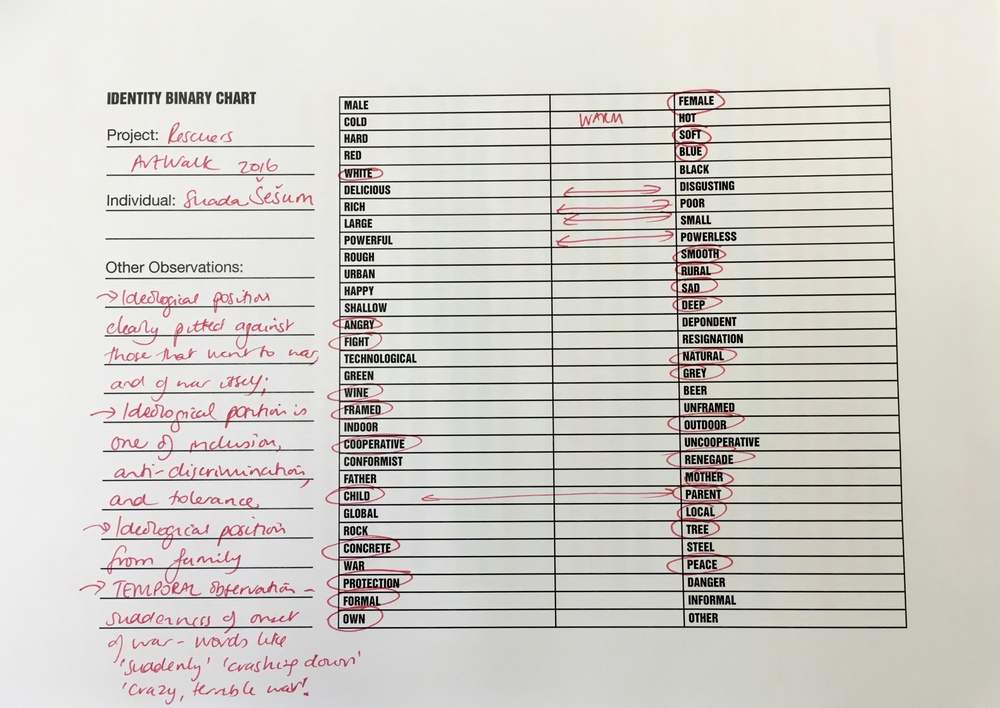 IDENTITY BINARY CHART
Project: Rescuers
ArtWalk 2016
Individual: Suada Šešum
Other Observations:
→ Ideological position
clearly pitted against
those that went to war,
and of war itself;
→ Ideological position is
one of inclusion,
anti-discrimination,
and tolerance,
→ Ideological position
from family
→ TEMPORAL observation –
suddenness of onset
of war – words like
'suddenly' 'crashing down'
'crazy, terrible war'.
MALE FEMALE
COLD WARM HOT
HARD SOFT
RED BLUE
WHITE BLACK
DELICIOUS DISGUSTING
RICH POOR
LARGE SMALL
POWERFUL POWERLESS
ROUGH SMOOTH
URBAN RURAL
HAPPY SAD
SHALLOW DEEP
ANGRY DEPONDENT
FIGHT RESIGNATION
TECHNOLOGICAL NATURAL
GREEN GREY
WINE BEER
FRAMED UNFRAMED
INDOOR OUTDOOR
COOPERATIVE UNCOOPERATIVE
CONFORMIST RENEGADE
FATHER MOTHER
CHILD PARENT
GLOBAL LOCAL
ROCK TREE
CONCRETE STEEL
WAR PEACE
PROTECTION DANGER
FORMAL INFORMAL
OWN OTHER